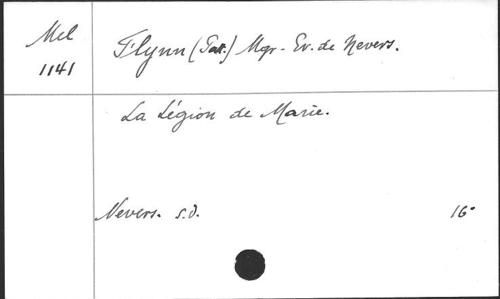 Mel
1141
Flynn (Patr.) Mgr - Ev. de Nevers.
La Légion de Marie.
Nevers. s.d.
16°